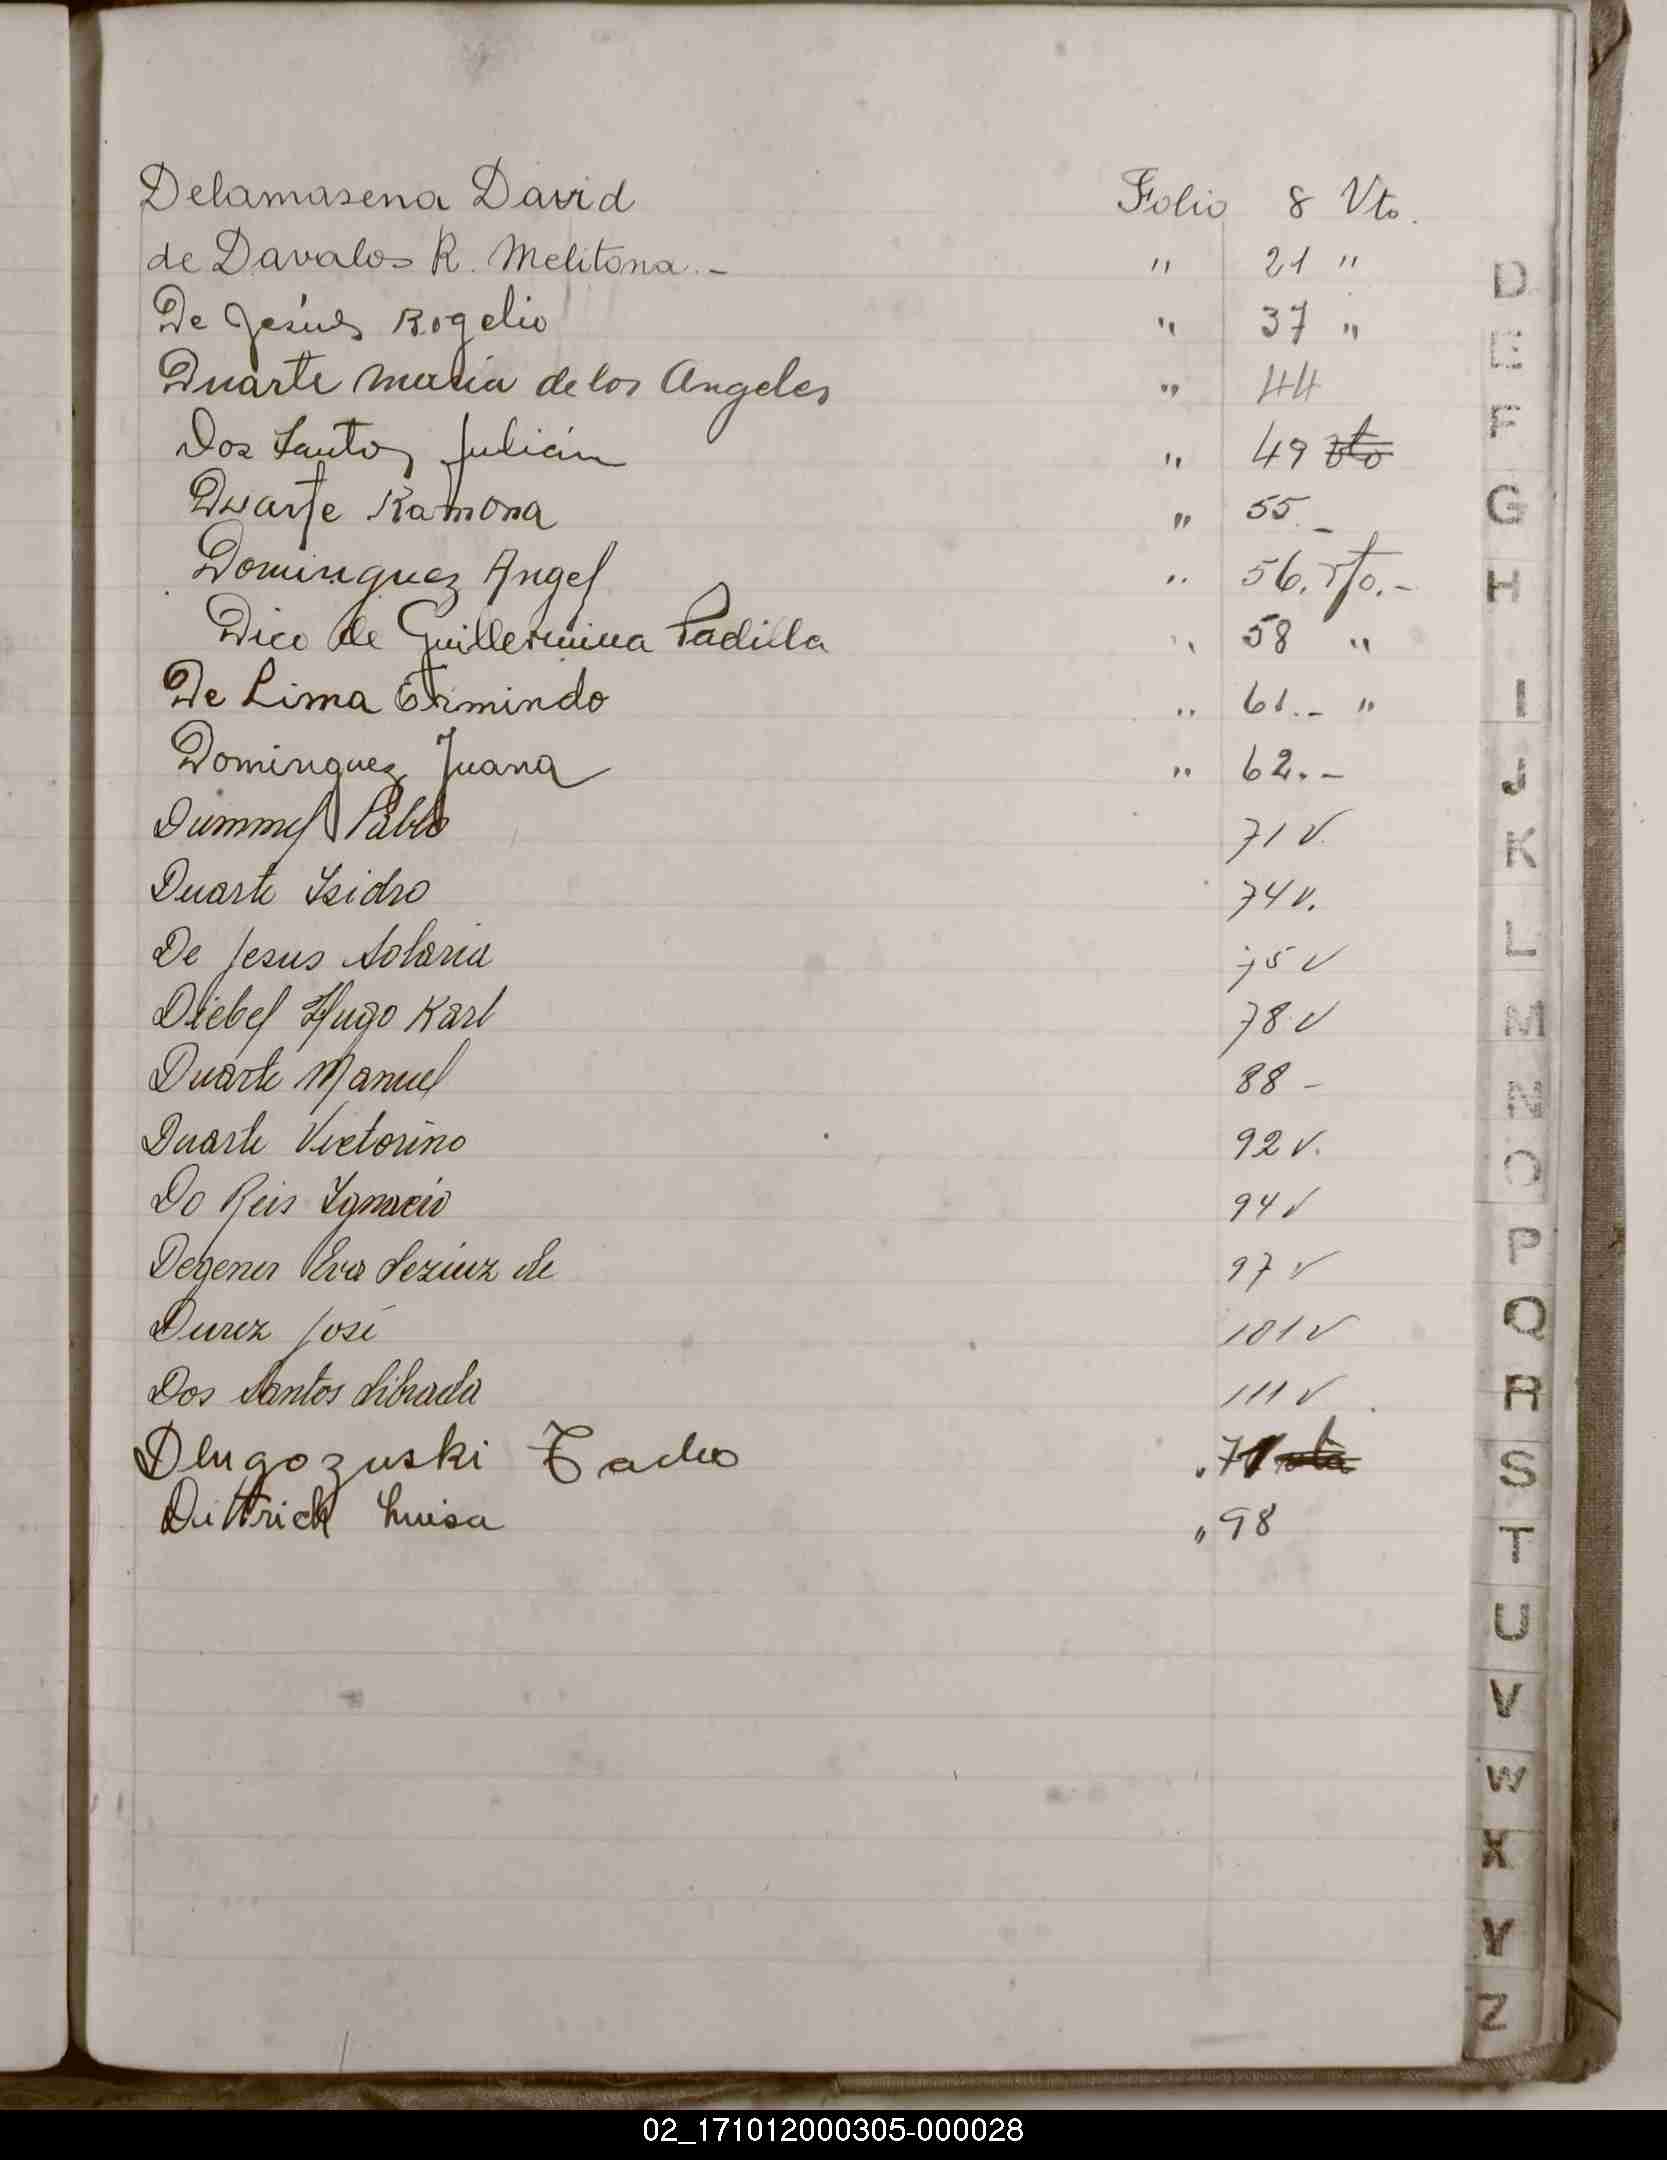 Delamasena David Folio 8 Vto.
de Davalos R. Melitona.- " 21 "
De Jesús Rogelio " 37 "
Duarte Maria de los Angeles " 44
Dos Santos Julián " 49 vto
Duarte Ramona " 55.-
Dominguez Angel " 56. Vto.-
Dico de Guillermina Padilla " 58 "
De Lima Ermindo " 61.- "
Dominguez Juana " 62.-
Dummel Pablo 71 v.
Duarte Isidro 74 v.
De Jesus 75 v
Diebel Hugo Karl 78 v
Duarte Manuel 88 -
Duarte Victorino 92 v.
Do Reis Ignacio 94 v
Degener Eva de 97 v
Durez José 101 v
Dos Santos Librada 111 v
Dlugozuski Tadeo "
Dittrich Luisa " 98
D
E
F
G
H
I
J
K
L
M
N
O
P
Q
R
S
T
U
V
W
X
Y
Z
02_171012000305-000028